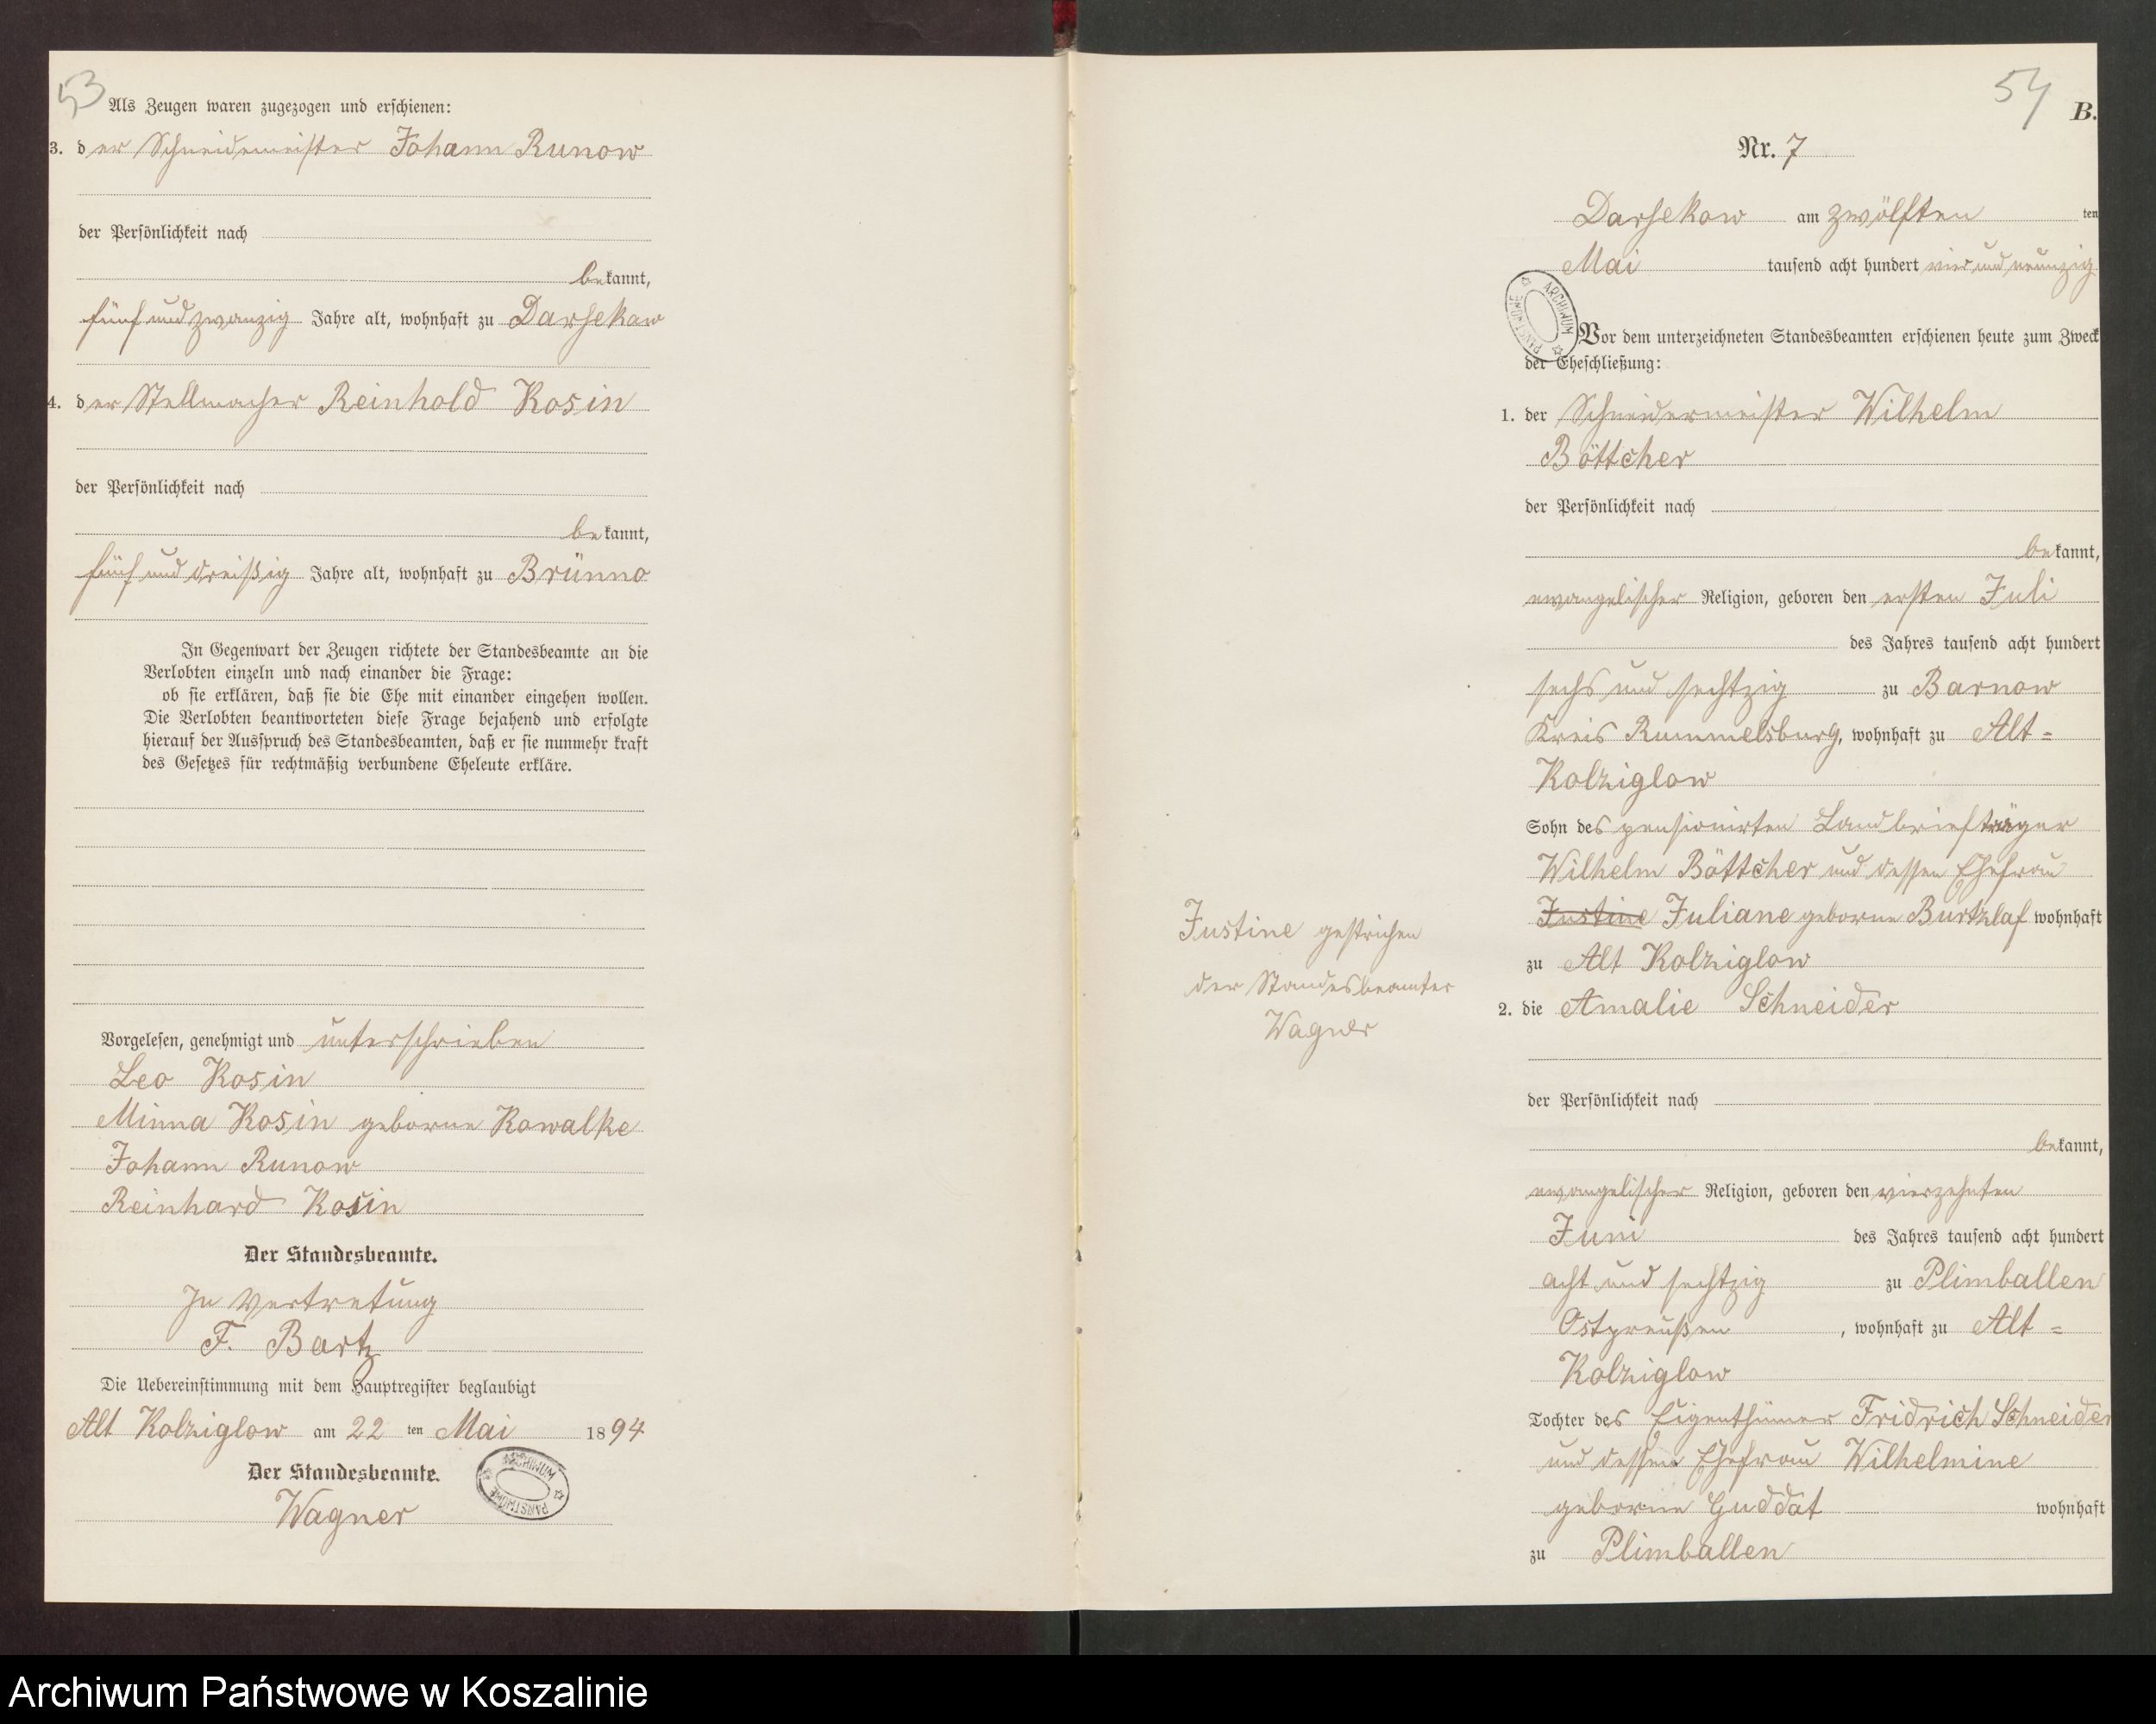 53
Als Zeugen waren zugezogen und erschienen:
3. der Schneidemeister Johann Runow
der Persönlichkeit nach
bekannt,
fünf und zwanzig Jahre alt, wohnhaft zu Darsekow
4. der Stellmacher Reinhold Kosin
der Persönlichkeit nach
bekannt,
fünf und dreißig Jahre alt, wohnhaft zu Brünno
In Gegenwart der Zeugen richtete der Standesbeamte an die
Verlobten einzeln und nach einander die Frage:
ob sie erklären, daß sie die Ehe mit einander eingehen wollen.
Die Verlobten beantworteten diese Frage bejahend und erfolgte
hierauf der Ausspruch des Standesbeamten, daß er sie nunmehr kraft
des Gesetzes für rechtmäßig verbundene Eheleute erkläre.
Vorgelesen, genehmigt und unterschrieben
Leo Kosin
Minna Kosin geborne Kowalke
Johann Runow
Reinhard Kosin
Der Standesbeamte.
In Vertretung
F. Bartz
Die Uebereinstimmung mit dem Hauptregister beglaubigt
Alt Kolziglow am 22 ten Mai 1894
Der Standesbeamte.
Wagner
ARCHIWUM PAŃSTWOWE
54
B.
Nr. 7
Darsekow am zwölften ten
Mai tausend acht hundert vier und neunzig
ARCHIWUM PAŃSTWOWE
Vor dem unterzeichneten Standesbeamten erschienen heute zum Zweck
der Eheschließung:
1. der Schneidermeister Wilhelm
Böttcher
der Persönlichkeit nach
bekannt,
ewangelischer Religion, geboren den ersten Juli
des Jahres tausend acht hundert
sechs und sechtzig zu Barnow
Kreis Rummelsburg, wohnhaft zu Alt=
Kolziglow
Sohn des pensionirten Landbriefträger
Wilhelm Böttcher und dessen Ehefrau
Justine Juliane geborne Burtzlaf wohnhaft
zu Alt Kolziglow
Justine gestrichen
der Standesbeamter
Wagner
2. die Amalie Schneider
der Persönlichkeit nach
bekannt,
ewangelischer Religion, geboren den vierzehnten
Juni des Jahres tausend acht hundert
acht und sechtzig zu Plimballen
Ostpreußen, wohnhaft zu Alt=
Kolziglow
Tochter des Eigenthümer Fridrich Schneider
und dessen Ehefrau Wilhelmine
geborne Guddat wohnhaft
zu Plimballen
Archiwum Państwowe w Koszalinie